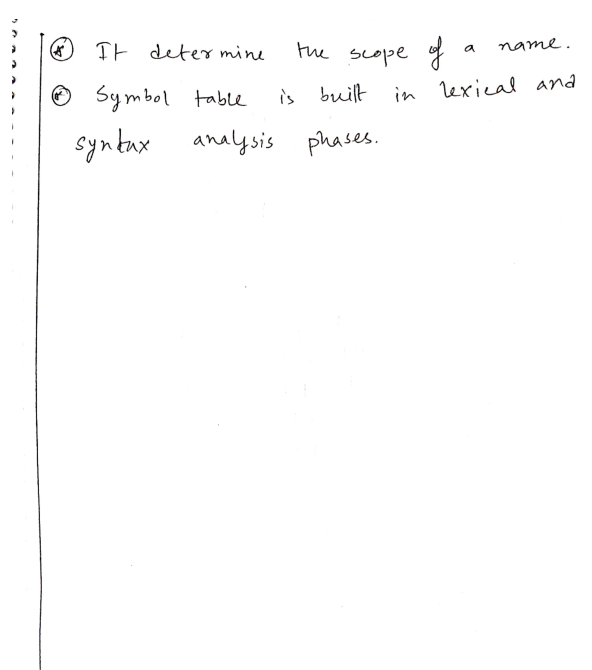 It determine the scope of a name.
Symbol table is built in lexical and
syntax analysis phases.